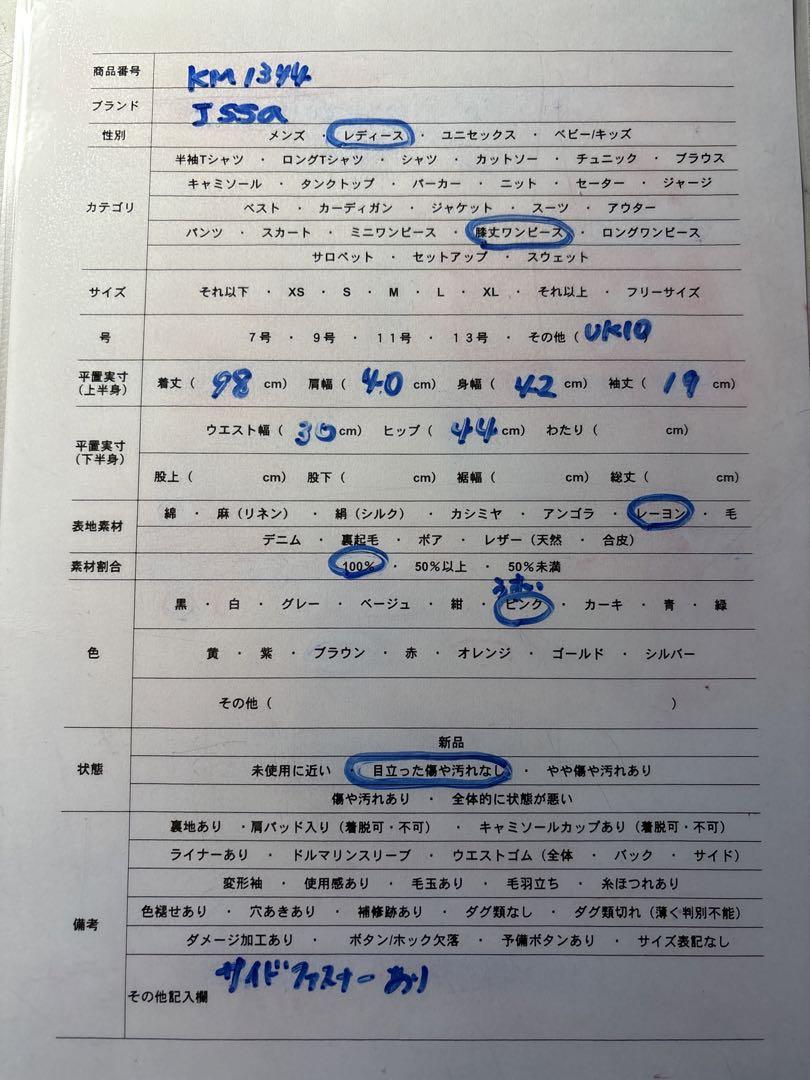 商品番号 KM1344
ブランド ISSA
性別 メンズ ・ レディース ・ ユニセックス ・ ベビー/キッズ
半袖Tシャツ ・ ロングTシャツ ・ シャツ ・ カットソー ・ チュニック ・ ブラウス
キャミソール ・ タンクトップ ・ パーカー ・ ニット ・ セーター ・ ジャージ
カテゴリ ベスト ・ カーディガン ・ ジャケット ・ スーツ ・ アウター
パンツ ・ スカート ・ ミニワンピース ・ 膝丈ワンピース ・ ロングワンピース
サロペット ・ セットアップ ・ スウェット
サイズ それ以下 ・ XS ・ S ・ M ・ L ・ XL ・ それ以上 ・ フリーサイズ
号 7号 ・ 9号 ・ 11号 ・ 13号 ・ その他(UK10)
平置実寸(上半身) 着丈(98 cm) 肩幅(40 cm) 身幅(42 cm) 袖丈(19 cm)
平置実寸(下半身) ウエスト幅(36 cm) ヒップ(44 cm) わたり( cm)
股上( cm) 股下( cm) 裾幅( cm) 総丈( cm)
表地素材 綿 ・ 麻(リネン) ・ 絹(シルク) ・ カシミヤ ・ アンゴラ ・ レーヨン ・ 毛
デニム ・ 裏起毛 ・ ボア ・ レザー(天然 ・ 合皮)
素材割合 100% ・ 50%以上 ・ 50%未満
うすい
黒 ・ 白 ・ グレー ・ ベージュ ・ 紺 ・ ピンク ・ カーキ ・ 青 ・ 緑
色 黄 ・ 紫 ・ ブラウン ・ 赤 ・ オレンジ ・ ゴールド ・ シルバー
その他( )
新品
状態 未使用に近い ・ 目立った傷や汚れなし ・ やや傷や汚れあり
傷や汚れあり ・ 全体的に状態が悪い
裏地あり ・肩パッド入り(着脱可・不可) ・ キャミソールカップあり(着脱可・不可)
ライナーあり ・ ドルマリンスリーブ ・ ウエストゴム(全体 ・ バック ・ サイド)
変形袖 ・ 使用感あり ・ 毛玉あり ・ 毛羽立ち ・ 糸ほつれあり
備考 色褪せあり ・ 穴あきあり ・ 補修跡あり ・ タグ類なし ・ タグ類切れ(薄く判別不能)
ダメージ加工あり ・ ボタン/ホック欠落 ・ 予備ボタンあり ・ サイズ表記なし
その他記入欄 サイドファスナーあり